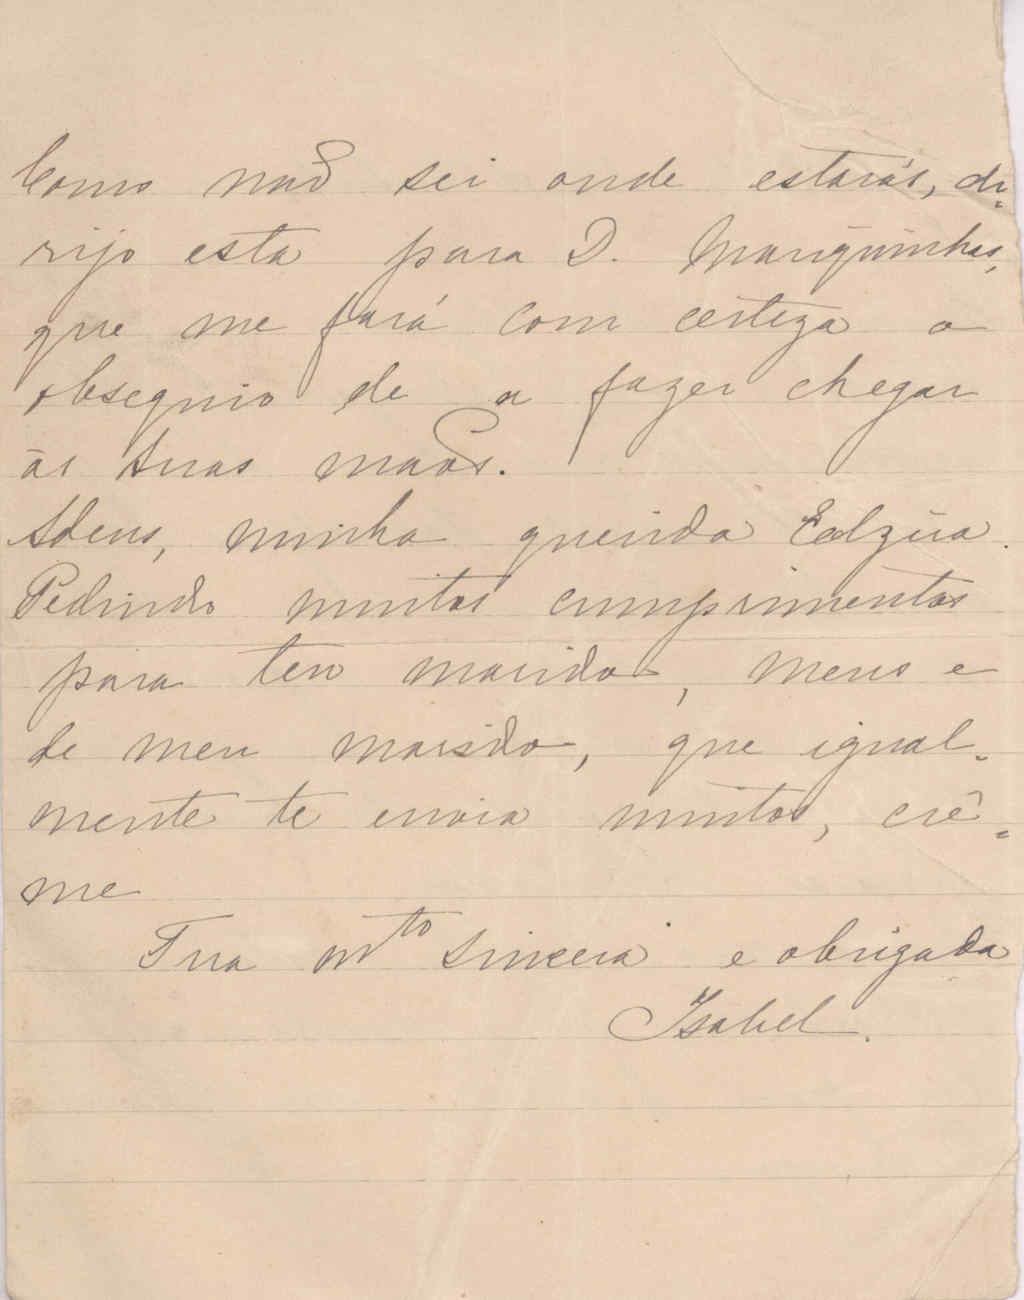 Como não sei onde estarás, di-
rijo esta para D. Mariquinhas,
que me fará com certeza o
obsequio de a fazer chegar
ás tuas mãos.
Adeus, minha querida
Pedindo muitos cumprimentos
para teu marido, meus e
de meu marido, que igual-
mente te envia muitos, crê-
me
Tua mto sincera e obrigada
Isabel.